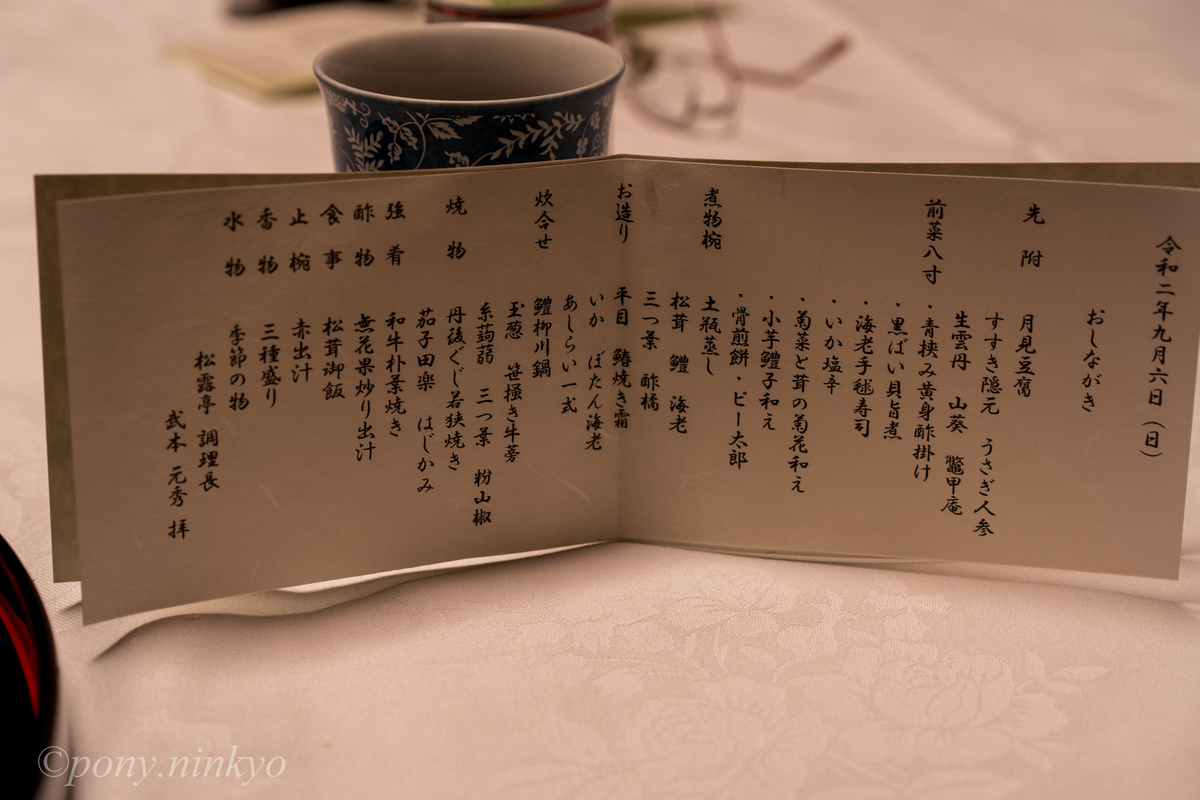 令和二年九月六日（日）
おしながき
先附 月見豆腐
すすき隠元 うさぎ人参
生雲丹 山葵 鼈甲庵
前菜八寸 ・青挟み黄身酢掛け
・黒ばい貝旨煮
・海老手毬寿司
・いか塩辛
・菊菜と茸の菊花和え
・小芋鱧子和え
・骨煎餅・ピー太郎
煮物椀 土瓶蒸し
松茸 鱧 海老
三つ葉 酢橘
お造り 平目 鰆焼き霜
いか ぼたん海老
あしらい一式
炊合せ 鱧柳川鍋
玉葱 笹掻き牛蒡
糸蒟蒻 三つ葉 粉山椒
焼物 丹後ぐじ若狭焼き
茄子田楽 はじかみ
強肴 和牛朴葉焼き
酢物 無花果炒り出汁
食事 松茸御飯
止椀 赤出汁
香物 三種盛り
水物 季節の物
松露亭 調理長
武本 元秀 拝
©pony.ninkyo